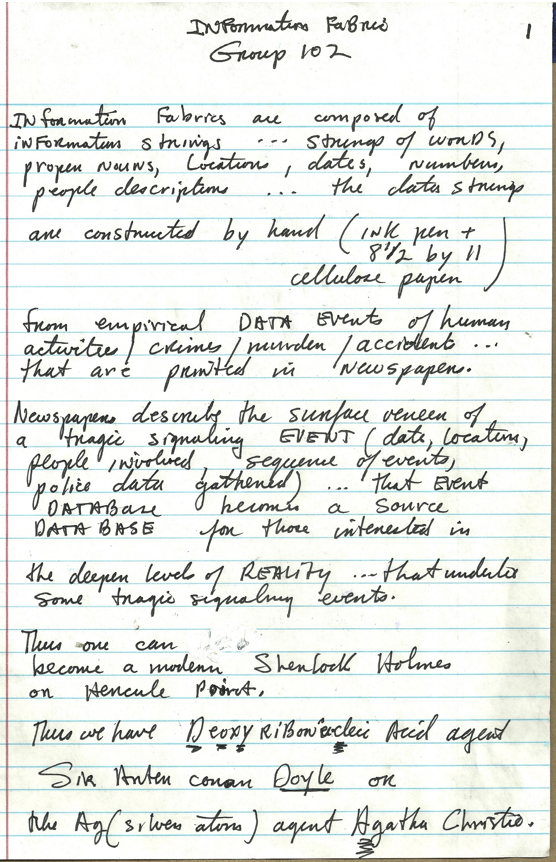 INformation Fabric
Group 102
1
INformation Fabrics are composed of
iNFormation strings ... strings of words,
proper Nouns, Locations, dates, Numbers,
people descriptions ... the data strings
are constructed by hand (INK pen +
8 1/2 by 11
cellulose paper)
from empirical DATA EVENTS of human
activities / crimes / murder / accidents ...
that are printed in Newspapers.
Newspapers describe the surface veneer of
a tragic signaling EVENT (date, location,
people involved, sequence of events,
police data gathered) ... that Event
DATABase becomes a Source
DATA BASE for those interested in
the deeper levels of REALITY ... that underlie
some tragic signaling events.
Thus one can
become a modern Sherlock Holmes
or Hercule Poirot.
Thus we have Deoxy RiBonucleic Acid agent
Sir Arter conan Doyle or
the Ag (silver atom) agent Agatha Christie.